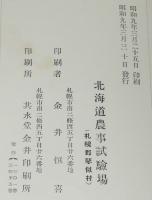 昭和九年三月二十五日印刷
昭和九年三月三十日發行
北海道農事試驗場
(札幌郡琴似村)
札幌市南二條西五丁目廿六番地
印刷者 金井恒喜
札幌市南二條西五丁目廿六番地
印刷所 共水堂金井印刷所